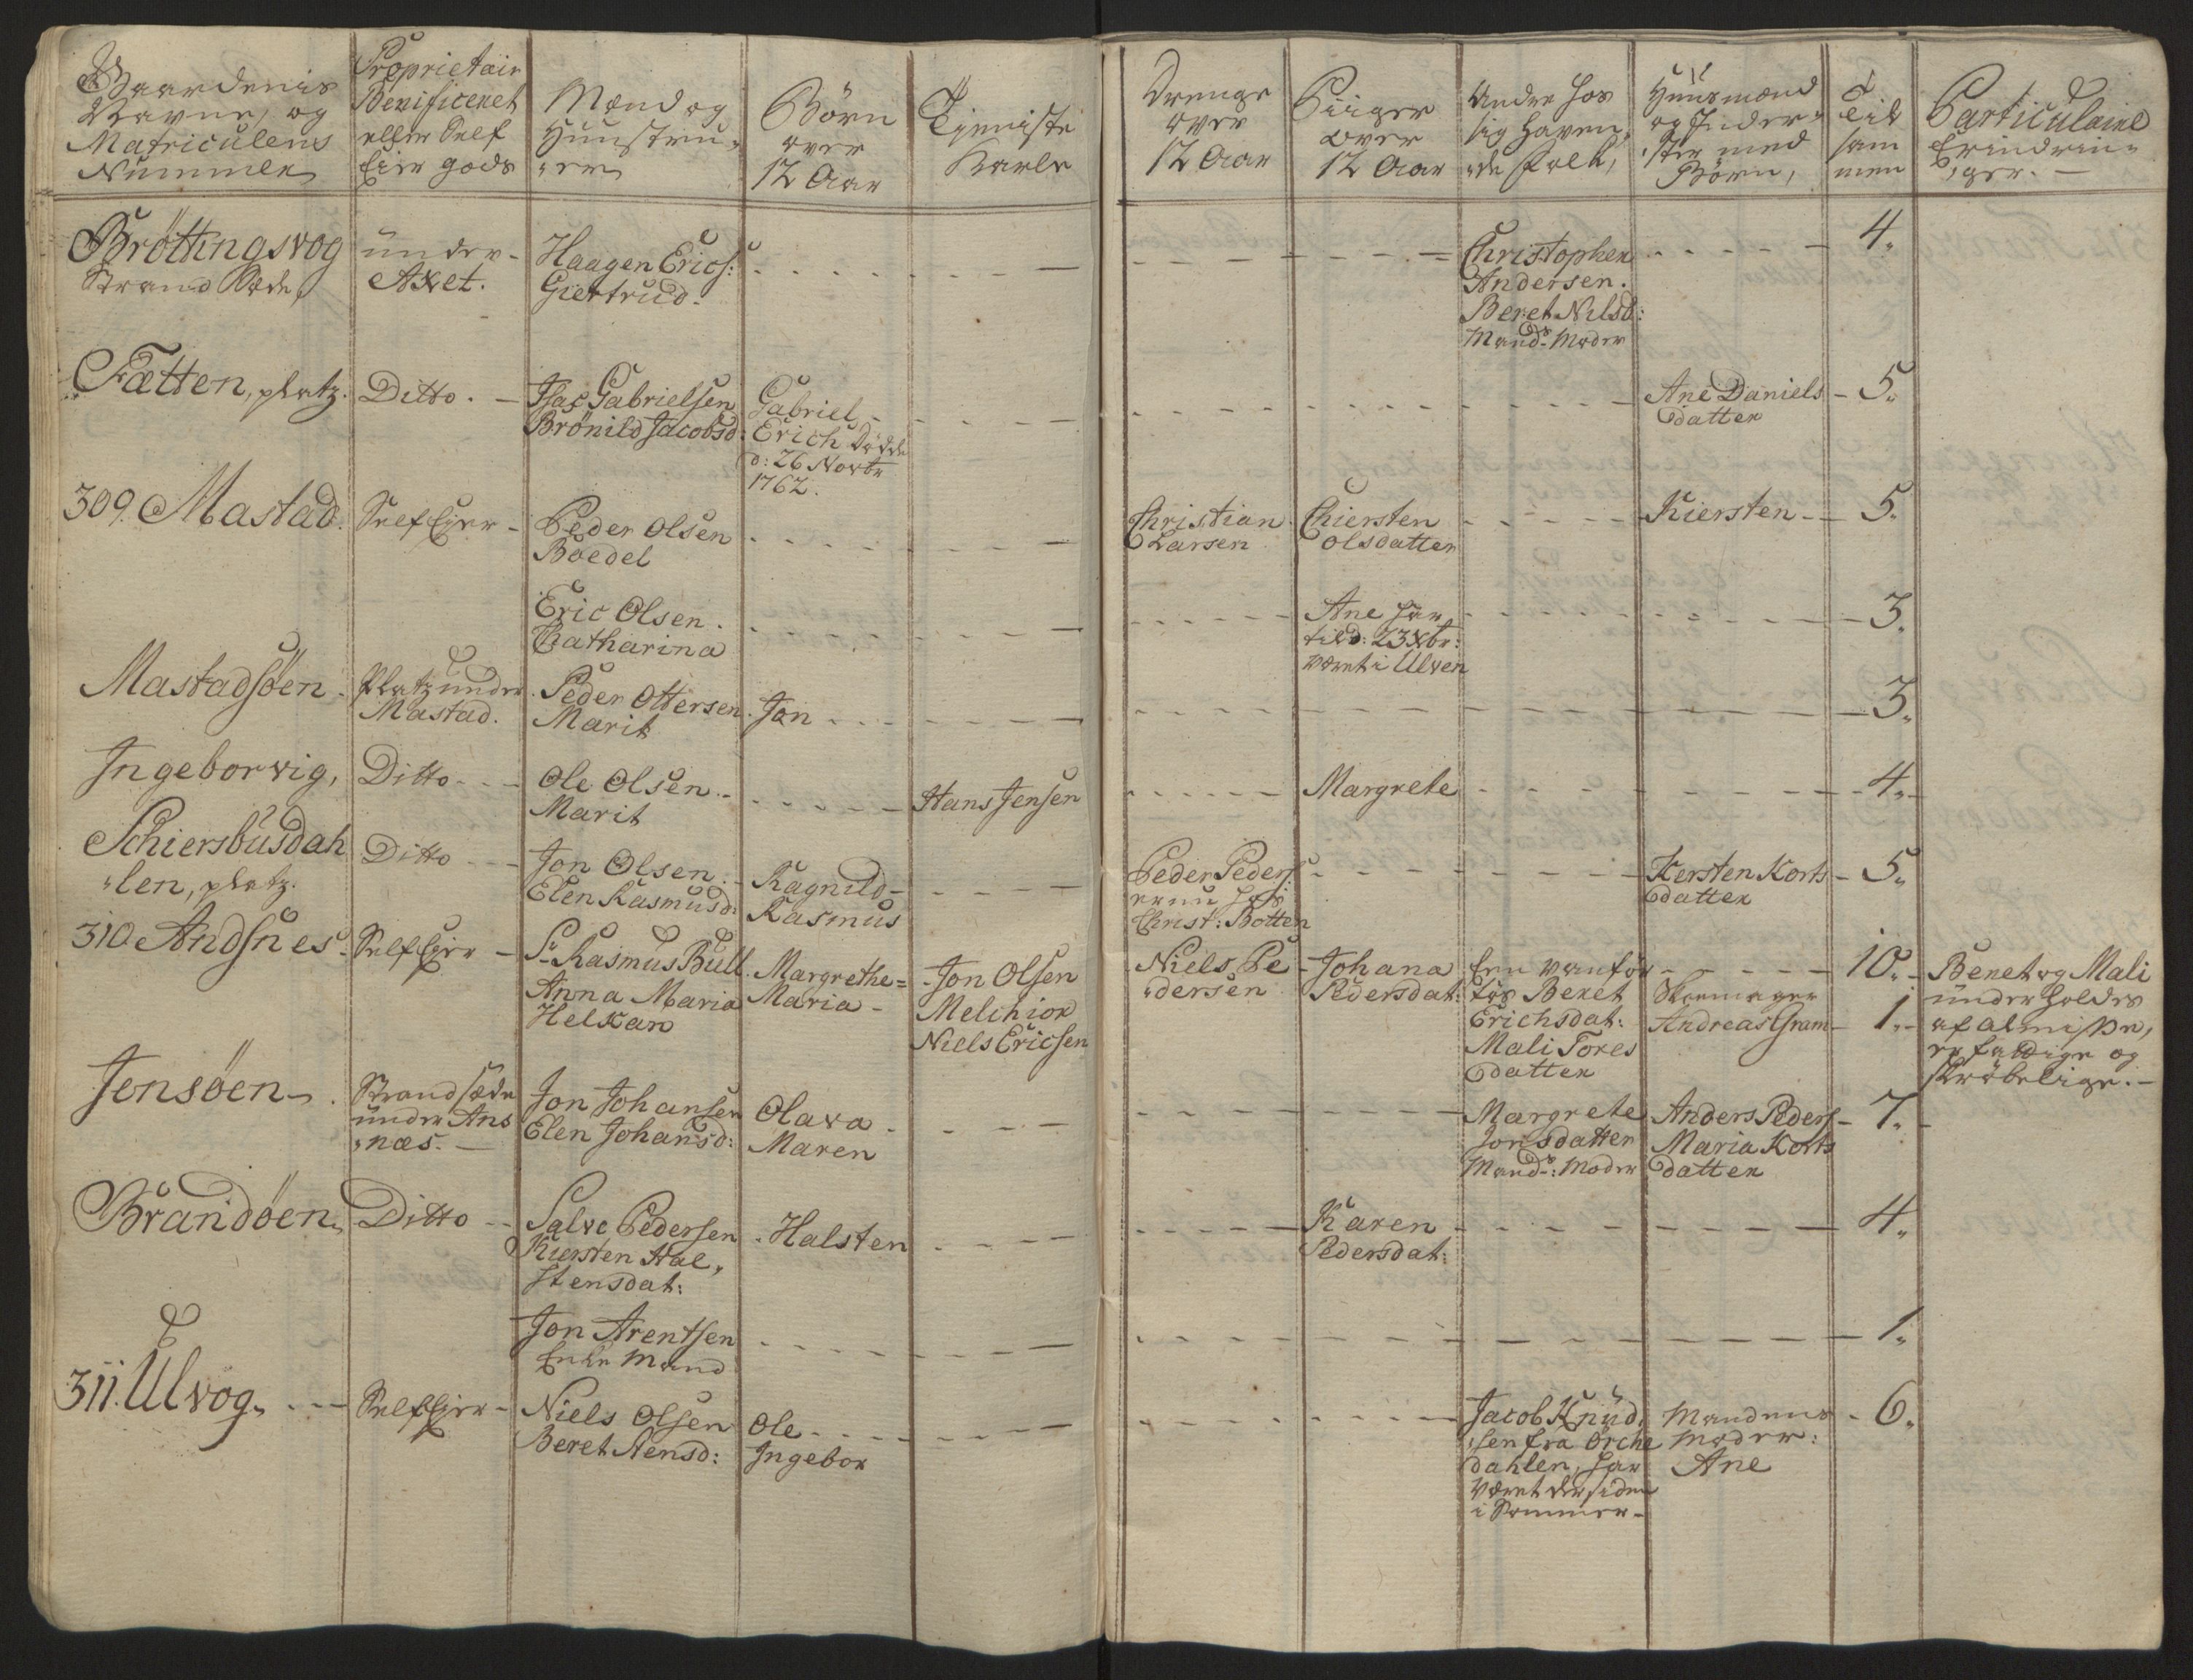 Gaardenis Navne, og Matriculens Nummer
Proprietair Benificeret eller Self Eier gods
Mænd og Huustru-er
Børn over 12 Aar
Tieniste Karle
Drenge over 12 Aar
Piiger over 12 Aar
Andre hos sig haven-de Folk,
Huusmænd og Inder-ster med Børn,
Til sam men
Particulaire Erindrin-ger.
Brøttingsvog
Strand Sæde,
under-
Axet.
Haagen Erics:
Giertrud.
Christopher
Andersen.
Beret Nilsd:
Mands Moder
4.
Fætten, platz.
Ditto.
Isac Gabrielsen
Brønild Jacobsd:
Gabriel
Erich Døde
d: 26 Novbr
1762.
Ane Daniels
datter
5.
309. Mastad.
Self Eier
Peder Olsen
Boedel
Christian
Larsen
Chiersten
Olsdatter
Kiersten
5.
Eric Olsen.
Catharina
Ane har
til d: 23 Xbr:
været i Ulven
3.
Mastadsöen
Platz under
Mastad.
Peder Ottersen
Marit
Jon
3.
Ingeborvig,
Ditto
Ole Olsen
Marit
Hans Jensen
Margrete
4.
Schiersbusdah
len, platz.
Ditto
Jon Olsen.
Elen Rasmusd:
Ragnild
Rasmus
Peder Peders:
er nu hos
Christ: Botten
Kersten Korts
datter
5.
310 Andsnes
Self Eier
Sr. Rasmus Bull
Anna Maria
Helkan
Margrethe
Maria
Jon Olsen
Melchior
Niels Ericsen
Niels Pe
dersen
Johana
Pedersdat:
Een vanfør
Beret
Erichsdat:
Mali Tores
datter
Skomager
Andreas Gram
10.
1.
Beret og Mali
underholdes
af Almisse,
er fattige og
skrøbelige.
Jensöen
Strand sæde
under Ans
næs.
Jon Johansen
Elen Johansd:
Olava
Maren
Margrete
Jonsdatter
Mands: Moder
Anders Peders
Maria Korts
datter
7.
Brandöen
Ditto
Salve Pedersen
Kiersten Hal,
stensdat:
Halsten
Karen
Pedersdat:
4.
Jon Arentsen
Enke Mand
1.
311. Ulvog.
Self Eier
Niels Olsen
Beret Stensd:
Ole
Ingebor
Jacob Knud,
sen fra Örche
dahlen, har
været der siden
i Sommer
Mandens
Moder:
Ane
6.